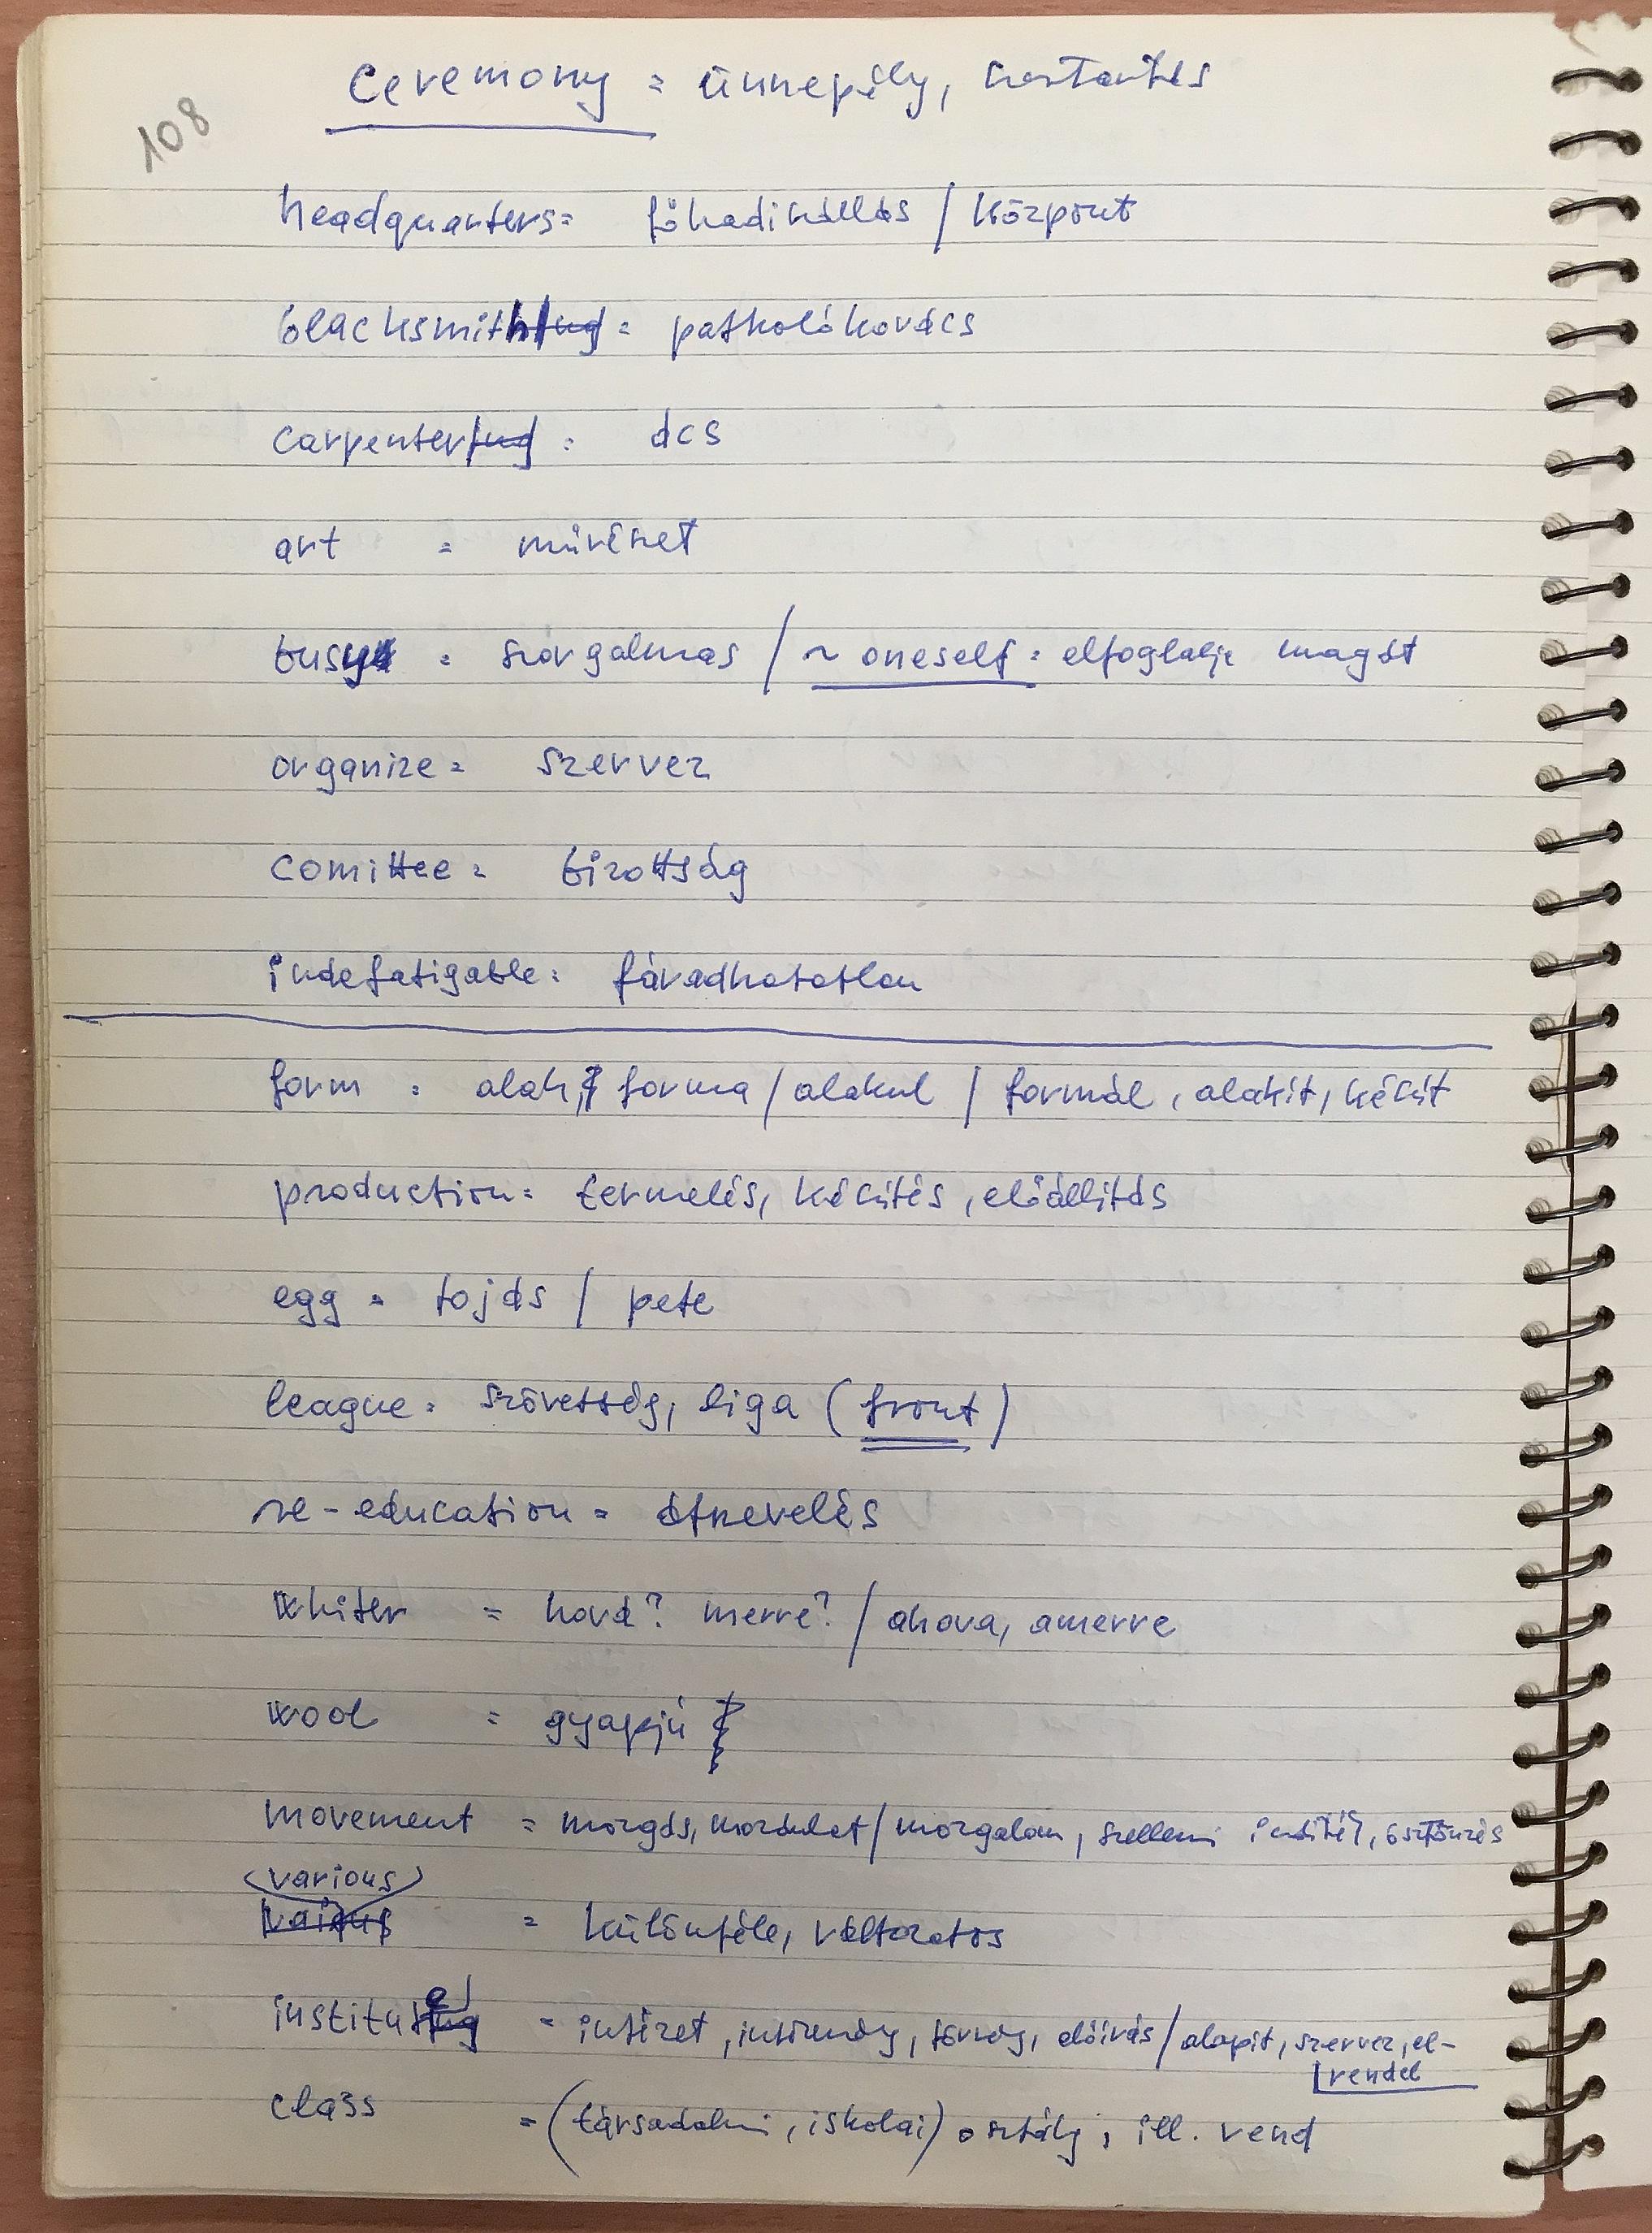 108
Ceremony = ünnepély, szertartás
headquarters = főhadiszállás / központ
blacksmith = patkolókovács
carpenter = ács
art = művészet
busy = szorgalmas / ~ oneself = elfoglalja magát
organize = szervez
comittee = bizottság
indefatigable = fáradhatatlan
form = alak, forma / alakul / formál, alakít, készít
production = termelés, készítés, előállítás
egg = tojás / pete
league = szövetség, liga (front)
re-education = átnevelés
whiter = hová? merre? / ahova, amerre
wool = gyapjú
movement = mozgás, mozdulat / mozgalom, szellemi indíték, ösztönzés
various
= különféle, változatos
institute = intézet, intézmény, törvény, előírás / alapít, szervez, el-
rendel
class = (társadalmi, iskolai) osztály, ill. rend